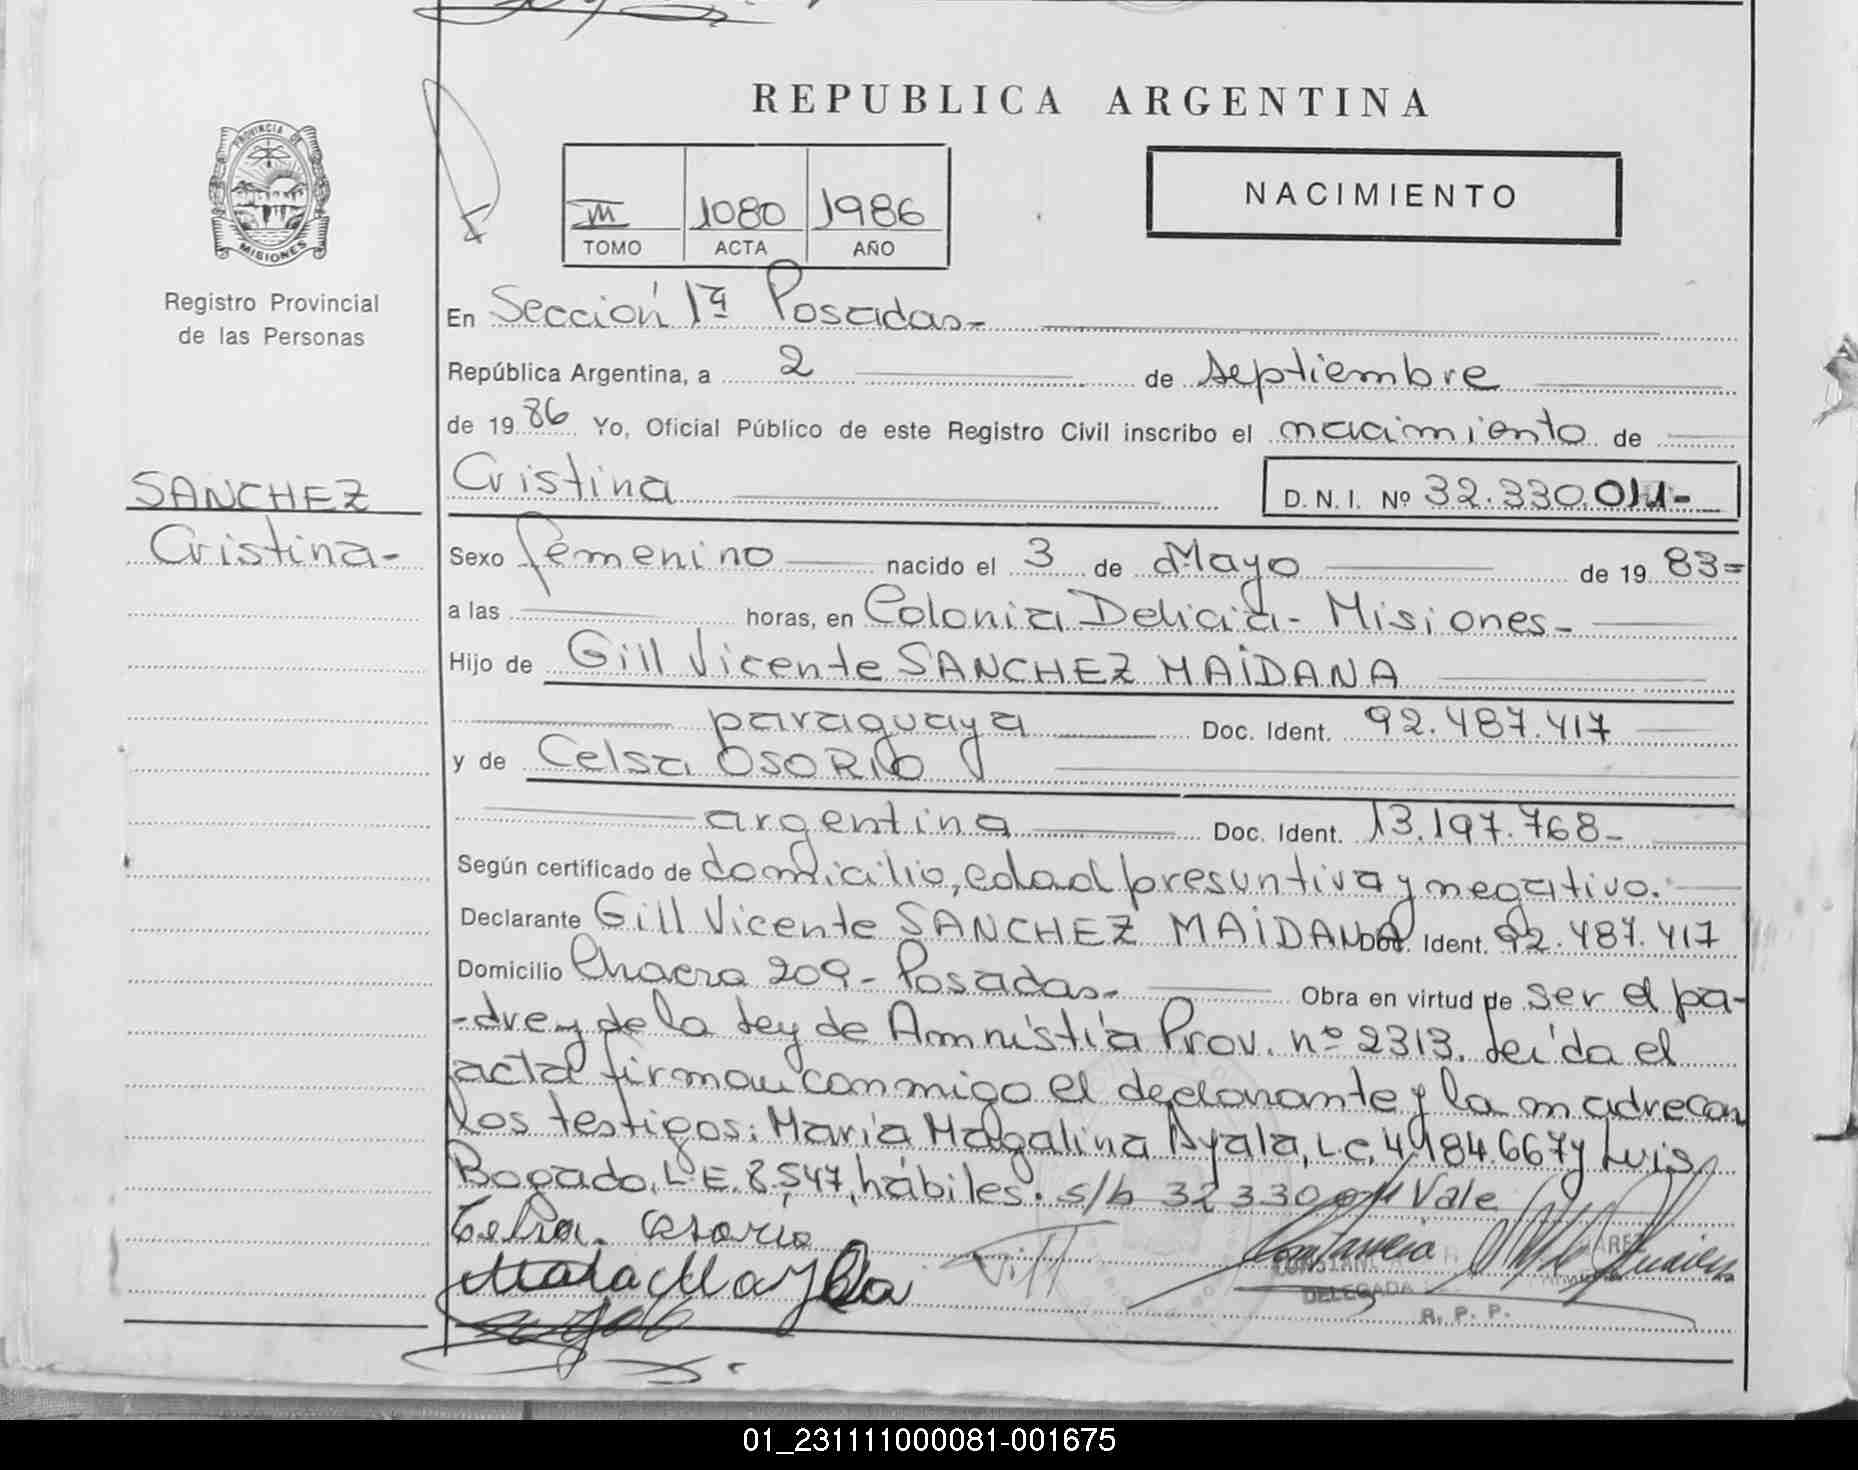 REPUBLICA ARGENTINA
PROVINCIA DE MISIONES
Registro Provincial
de las Personas
III 1080 1986
TOMO ACTA AÑO
NACIMIENTO
En Sección 1ª Posadas-
República Argentina, a 2 de septiembre
de 1986 Yo, Oficial Público de este Registro Civil inscribo el nacimiento de
SANCHEZ
Cristina-
Cristina D.N.I. Nº 32.330.011-
Sexo femenino nacido el 3 de Mayo de 1983=
a las horas, en Colonia Delicia- Misiones-
Hijo de Gill Vicente SANCHEZ MAIDANA
paraguaya Doc. Ident. 92.487.417
y de Celsa OSORIO
argentina Doc. Ident. 13.197.768-
Según certificado de domicilio, edad presuntiva y negativo.
Declarante Gill Vicente SANCHEZ MAIDANA Doc. Ident. 92.487.417
Domicilio Chacra 209- Posadas- Obra en virtud de ser el pa-
-dre y de la Ley de Amnistía Prov. nº 2313. Leída el
acta firman conmigo el declarante y la madre con
los testigos: María Magalina Ayala, L.C. 4.184.667 y Luis
Bogado, L.E. 8.547, hábiles. s/b 32 330 011 Vale
Celsa Osorio
DELEGADA
R. P. P.
01_231111000081-001675